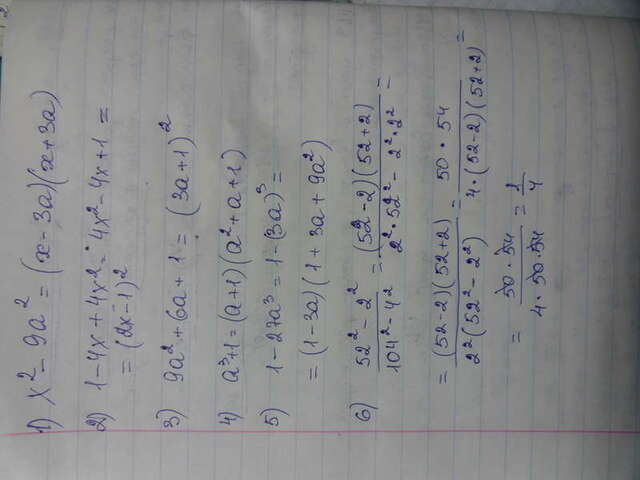 1) x² - 9a² = (x - 3a)(x + 3a)
2) 1 - 4x + 4x² = 4x² - 4x + 1 =
= (2x - 1)²
3) 9a² + 6a + 1 = (3a + 1)²
4) a³ + 1 = (a + 1)(a² + a + 1)
5) 1 - 27a³ = 1 - (3a)³ =
= (1 - 3a)(1 + 3a + 9a²)
6) (52² - 2²)/(104² - 4²) = ((52 - 2)(52 + 2))/(2² · 52² - 2² · 2²) =
= ((52 - 2)(52 + 2))/(2²(52² - 2²)) = (50 · 54)/(4 · (52 - 2)(52 + 2)) =
= (50 · 54)/(4 · 50 · 54) = 1/4